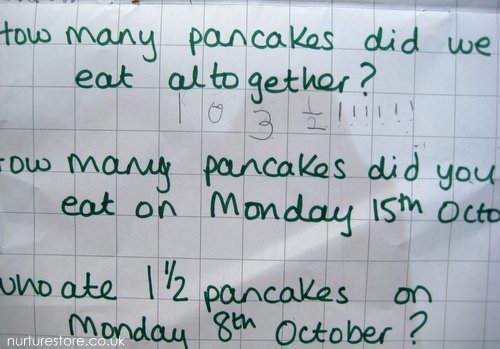 How many pancakes did we
eat altogether?
1 0 3 ½ !!!!!!!
How many pancakes did you
eat on Monday 15th Octo
who ate 1½ pancakes on
Monday 8th October?
nurturestore.co.uk